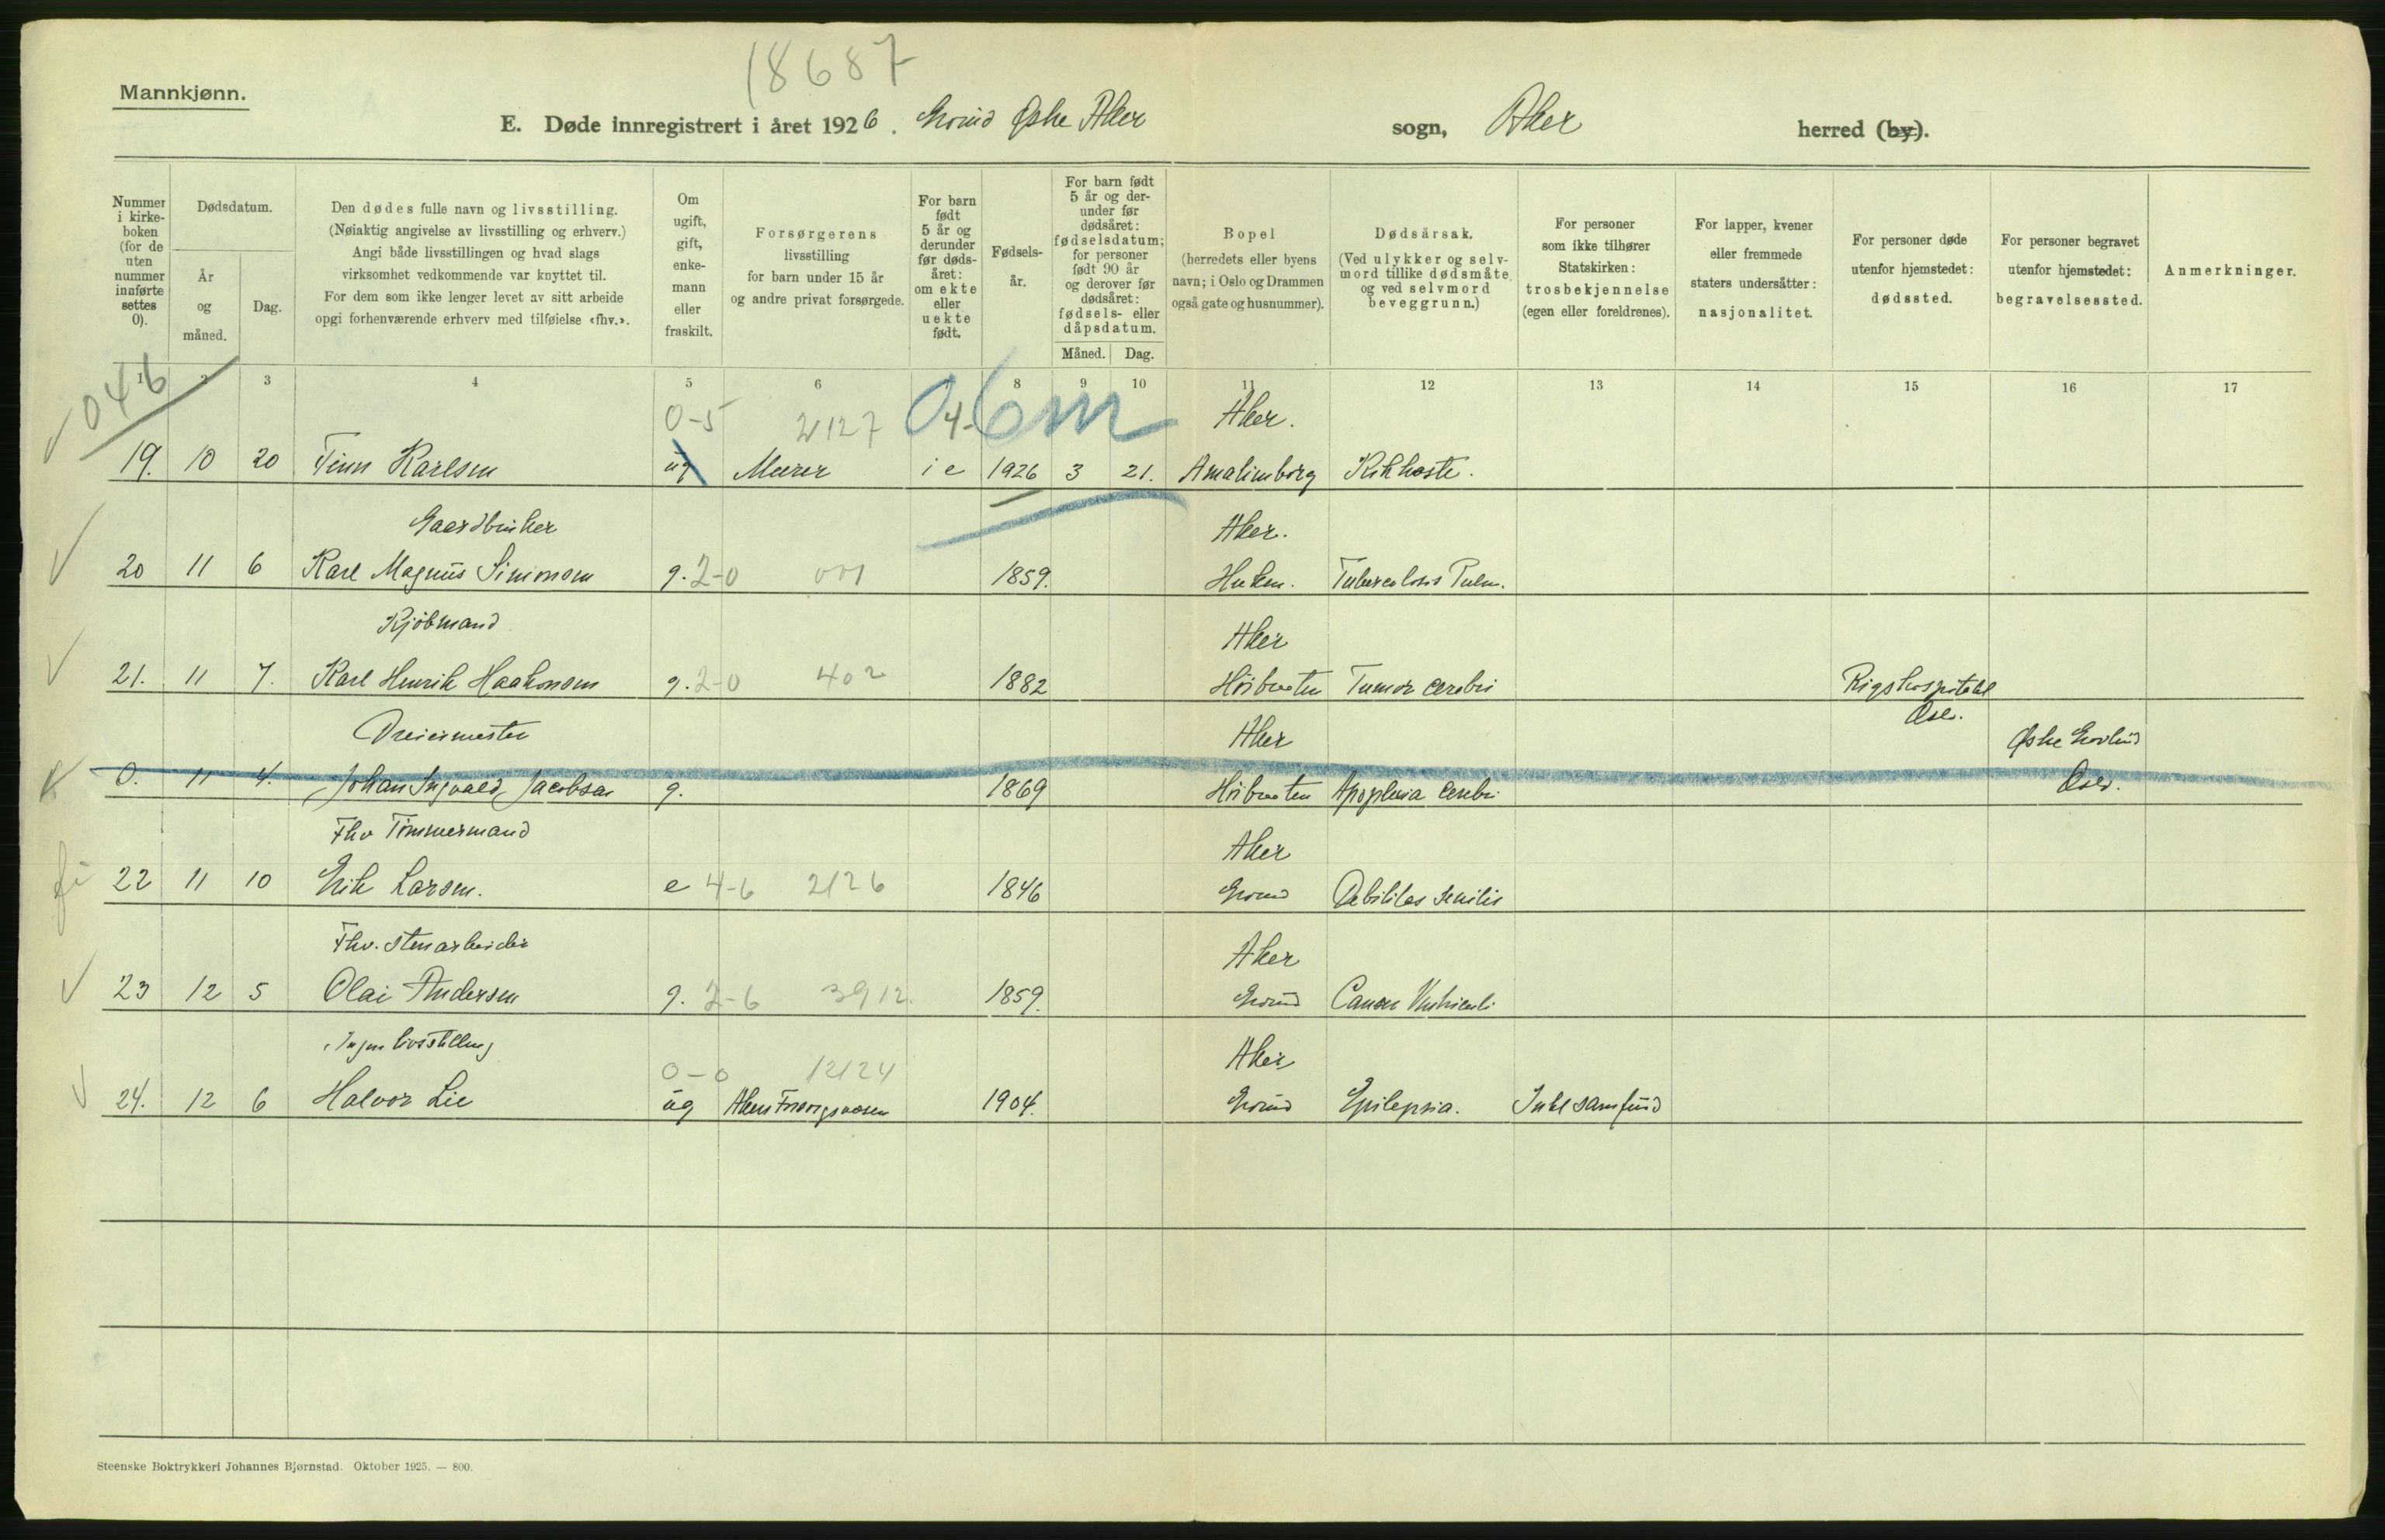 18687
Mannkjønn.
E. Døde innregistrert i året 1926. Grorud Østre Aker sogn, Aker herred (by).
Nummer i kirkeboken (for de uten nummer innførte settes 0).
Dødsdatum.
År og måned.
Dag.
Den dødes fulle navn og livsstilling.
(Nøiaktig angivelse av livsstilling og erhverv.)
Angi både livsstillingen og hvad slags
virksomhet vedkommende var knyttet til.
For dem som ikke lenger levet av sitt arbeide
opgi forhenværende erhverv med tilføielse «fhv.».
Om ugift, gift, enkemann eller fraskilt.
Forsørgerens
livsstilling
for barn under 15 år
og andre privat forsørgede.
For barn født 5 år og derunder før dødsåret: om ekte eller uekte født.
Fødselsår.
For barn født 5 år og derunder før dødsåret: fødselsdatum; for personer født 90 år og derover før dødsåret: fødsels- eller dåpsdatum.
Måned. Dag.
Bopel
(herredets eller byens
navn; i Oslo og Drammen
også gate og husnummer).
Dødsårsak.
(Ved ulykker og selvmord tillike dødsmåte og ved selvmord beveggrunn.)
For personer
som ikke tilhører
Statskirken:
trosbekjennelse
(egen eller foreldrenes).
For lapper, kvener
eller fremmede
staters undersåtter:
nasjonalitet.
For personer døde
utenfor hjemstedet:
dødssted.
For personer begravet
utenfor hjemstedet:
begravelsessted.
Anmerkninger.
1 2 3 4 5 6 8 9 10 11 12 13 14 15 16 17
046
0-5 2127 04- 6m Aker.
19. 10 20 Finn Karlsen ug Murer i e 1926 3 21. Amalienborg Kikhoste.
Gaardbruker Aker.
20 11 6 Karl Magnus Simonsen g. 2-0 001 1859. Huken. Tuberculosis Pulm.
Kjøbmand Aker
21. 11 7. Karl Henrik Haakonsen g. 2-0 402 1882 Høibraaten Tumor cerebri Rigshospitalet
Oslo.
Dreiermester Aker Østre Gravlund
0. 11 4. Johan Ingvald Jacobsen g. 1869 Høibraaten Apoplexia cerebri Oslo.
Fhv Tømmermand Aker
22 11 10 Erik Larsen. e 4-6 2126 1846 Grorud Debilitas senilis
Fhv. stenarbeider Aker
23 12 5 Olai Andersen g. 2-6 3912. 1859. Grorud Cancer Ventriculi
Ingen livsstilling 0-0 12124 Aker
24. 12 6 Halvor Lie ug Akers Forsorgsvæsen 1904. Grorud Epilepsia.
Steenske Boktrykkeri Johannes Bjørnstad. Oktober 1925. — 800.